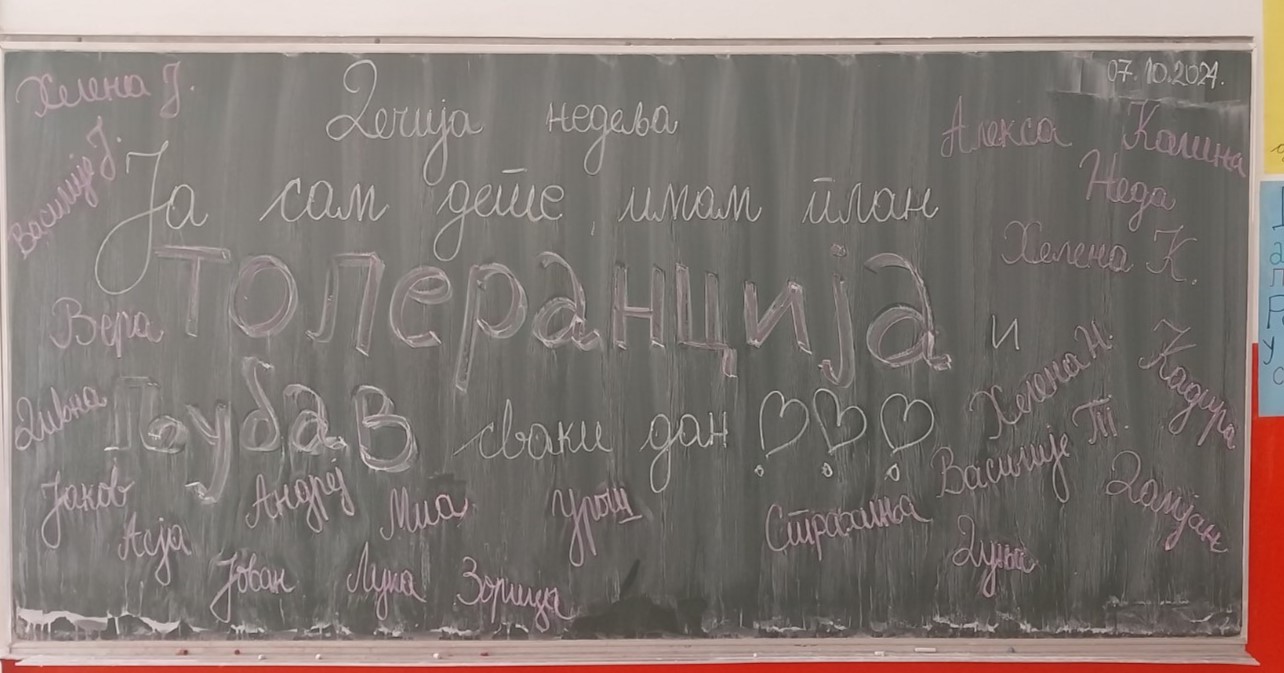 07.10.2024.
Хелена Ј.
Дечија недеља
Алекса
Калина
Василије Ј.
Ја сам дете, имам план
Неда
Хелена К.
ТОЛЕРАНЦИЈА и
Вера
Хелена Н.
Кадира
Дивна
Љубав сваки дан !!!
Василије Т.
Јаков
Андреј
Миа
Урош
Страхиња
Дамјан
Асја
Јован
Лука
Зорица
Дуња